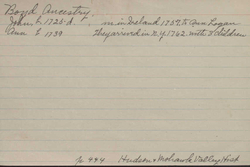 Boyd Ancestry
John b. 1725 d. m in Ireland 1757 to Ann Logan
Ann b 1739 They arrived in N.Y. 1762 with 3 children
p 494 Hudson & Mohawk Valley Hist